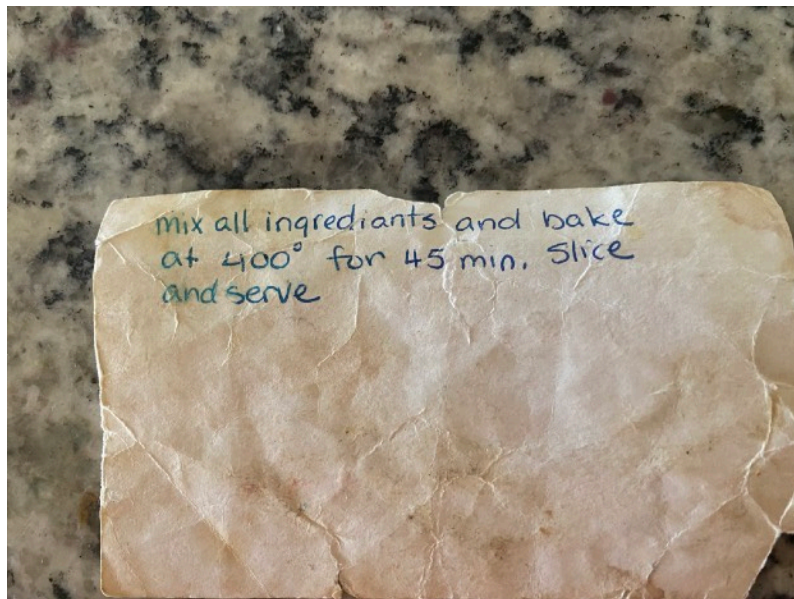 mix all ingrediants and bake
at 400° for 45 min. Slice
and serve